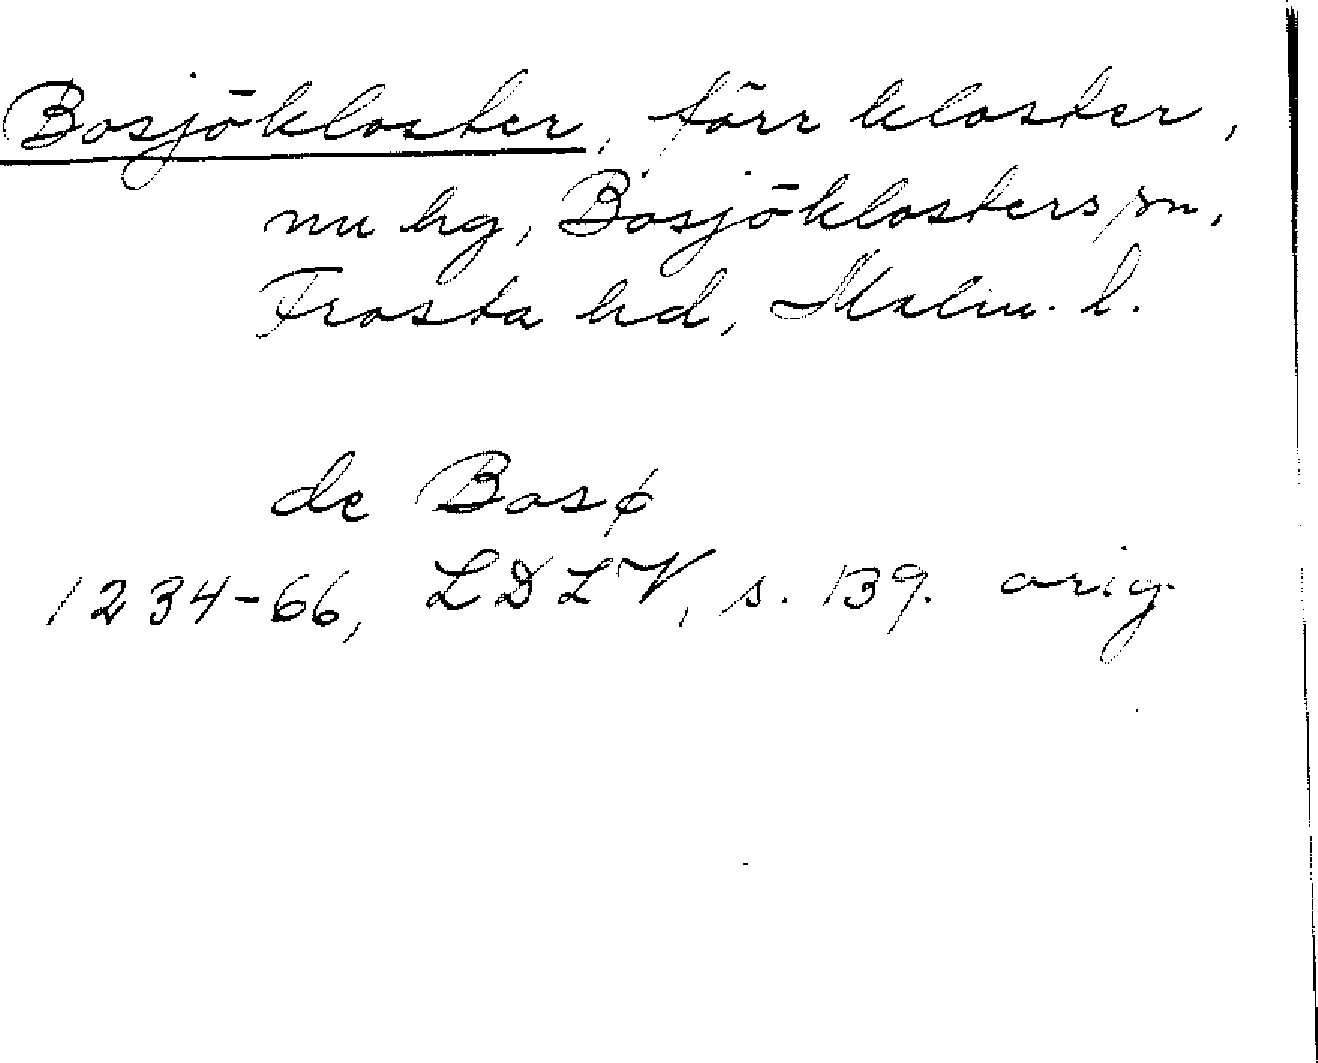 Bosjökloster, förr kloster,
nu hg, Bosjöklosters sn,
Frosta hd, Malm. l.
de Bosø
1234-66, LDLV, s. 139. orig.